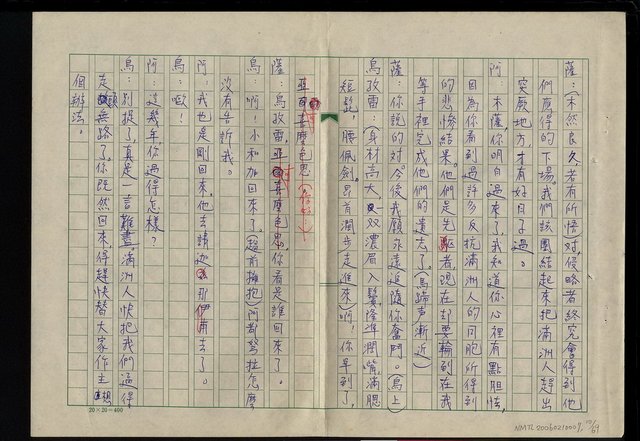 薩：(木然良久若有所悟)對，侵略者終究會得到他
們應得的下場。我們該團結起來把滿洲人趕出
突厥地方，才有好日子過。
阿：木薩，你明白過來了，我知道你心裡有點胆怯，
因為你看到過許多反抗滿洲人的同胞所得到
的悲慘結果。他們是先驅者，現在却要輪到在我
等手裡完成他們的遺志了。(馬蹄聲漸近)
薩：你說的對，今後我願永遠追隨你奮鬥。(烏上)
烏孜雷：(身材高大，一双濃眉入鬢，隆準濶嘴，滿腮
短髭，腰佩劍，昂首濶步走進來)啊！你早到了，
薩：烏孜雷，你看是誰回來了。
烏：啊！小和加回來了。(趨前擁抱)阿哥怎麼
沒有告訴我。
阿：我也是剛回來，他去請那伊甫去了。
烏：噢！
阿：這幾年你過得怎樣？
烏：別提了，真是一言難盡，滿洲人快把我們逼得
走頭無路了。你既然回來，得趕快替大家作主想
個辦法。
20×20=400
NMTL